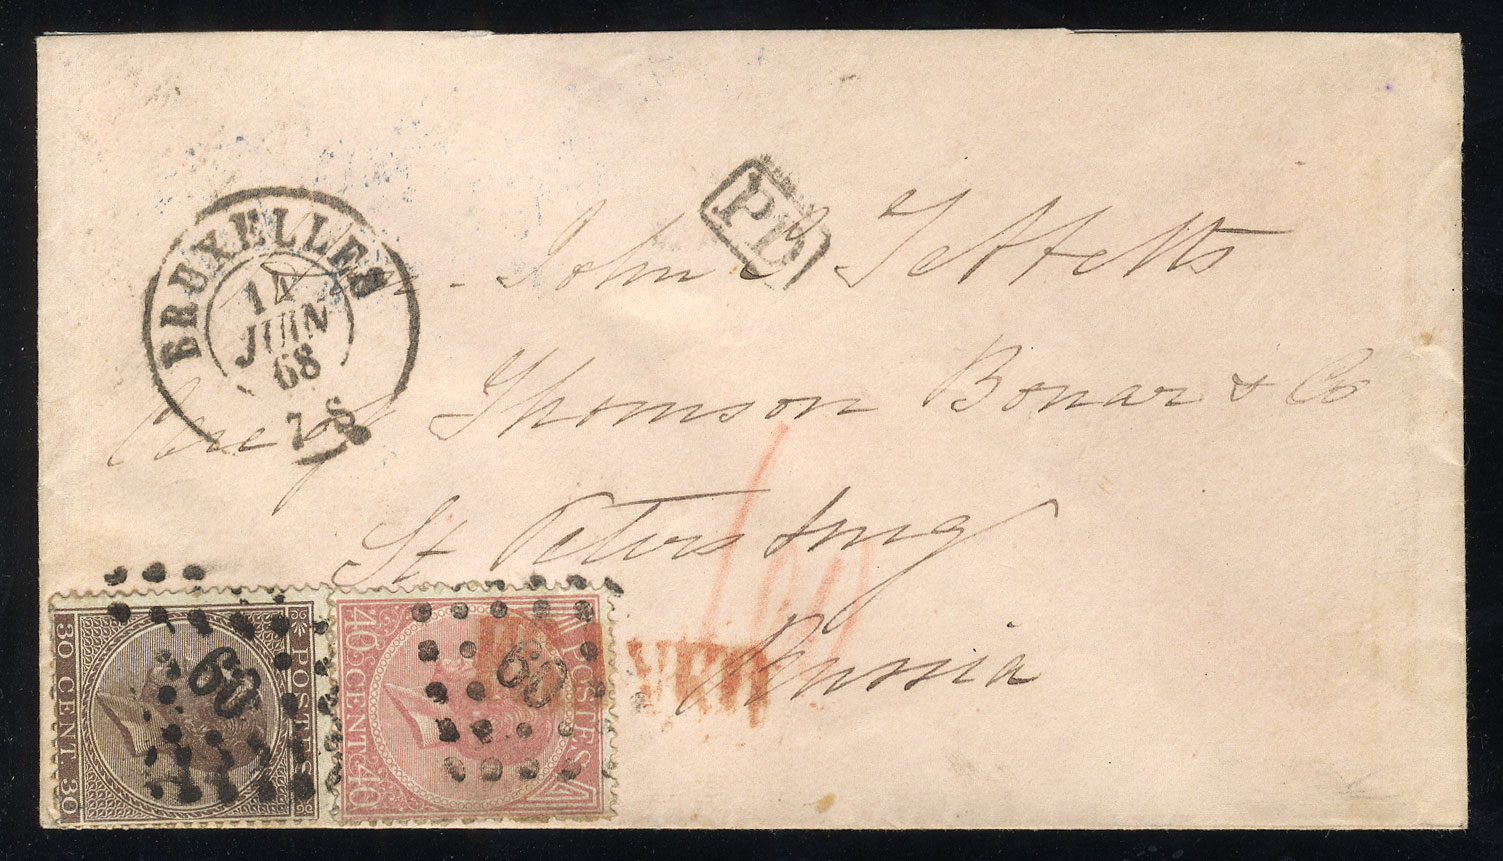 BRUXELLES
14
JUIN
68
7-S
PD
John L Tettelts
Care of Thomson Bonar & Co
St Petersburg
Russia
30 CENT. 30
POSTES
60
40 CENT 40
POSTES
60